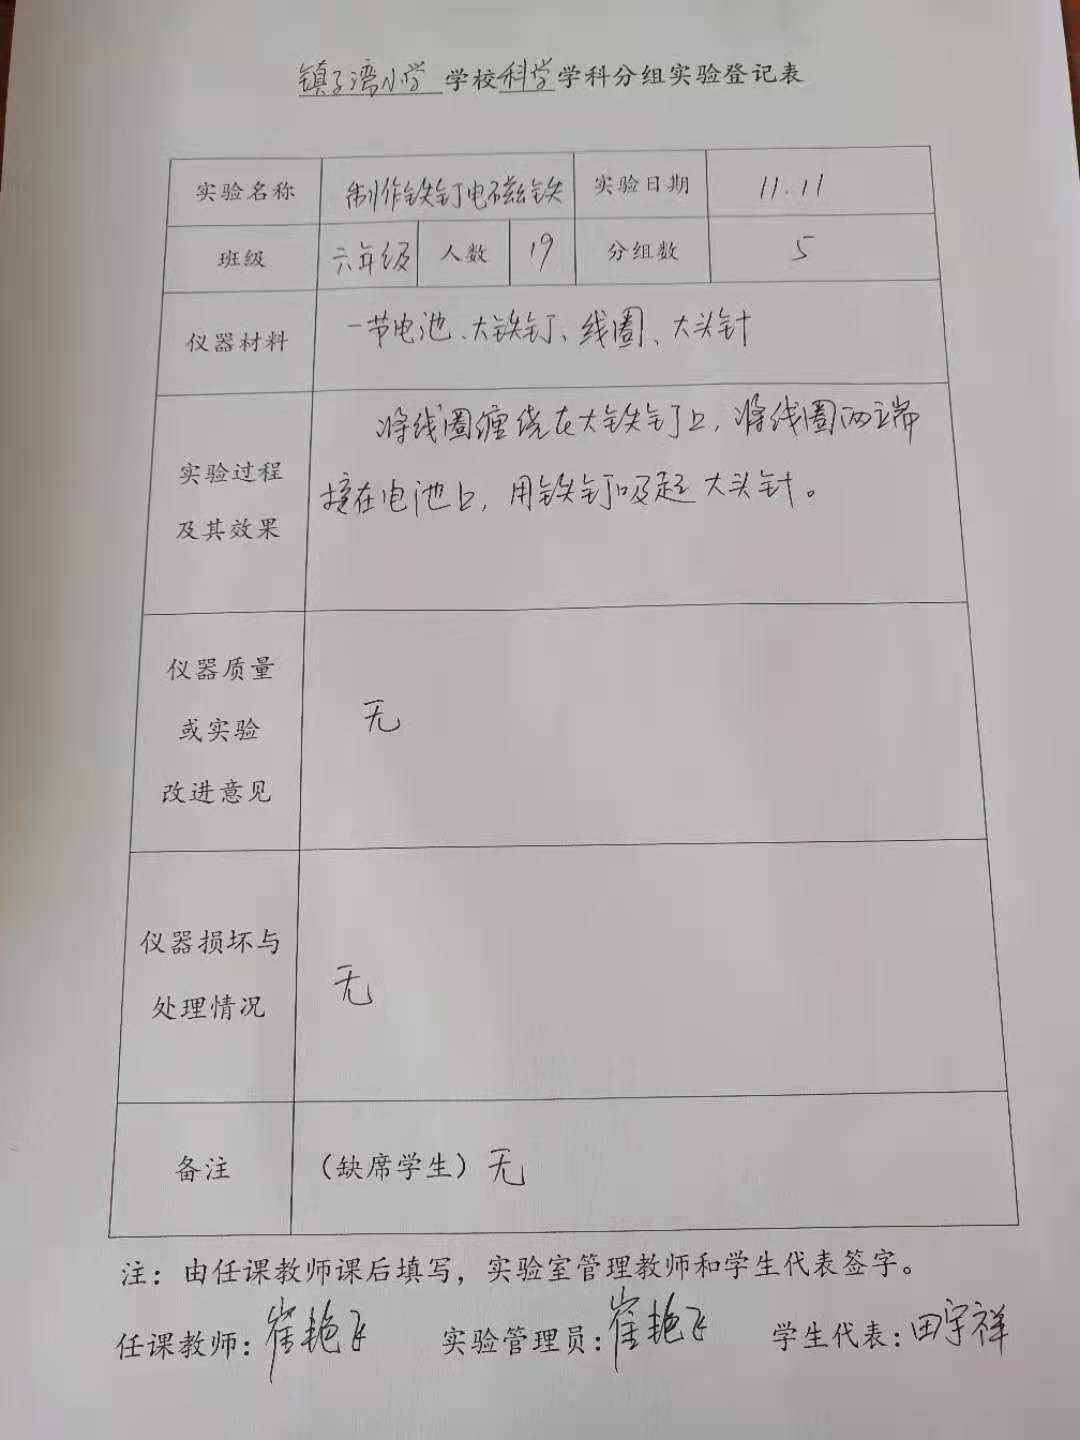 镇子湾小学 学校科学学科分组实验登记表
实验名称 制作铁钉电磁铁 实验日期 11.11
班级 六年级 人数 19 分组数 5
仪器材料 一节电池、大铁钉、线圈、大头针
实验过程
及其效果
将线圈缠绕在大铁钉上,将线圈两端
接在电池上,用铁钉吸起大头针。
仪器质量
或实验
改进意见
无
仪器损坏与
处理情况
无
备注 (缺席学生) 无
注:由任课教师课后填写,实验室管理教师和学生代表签字。
任课教师:崔艳飞 实验管理员:崔艳飞 学生代表:田宇祥